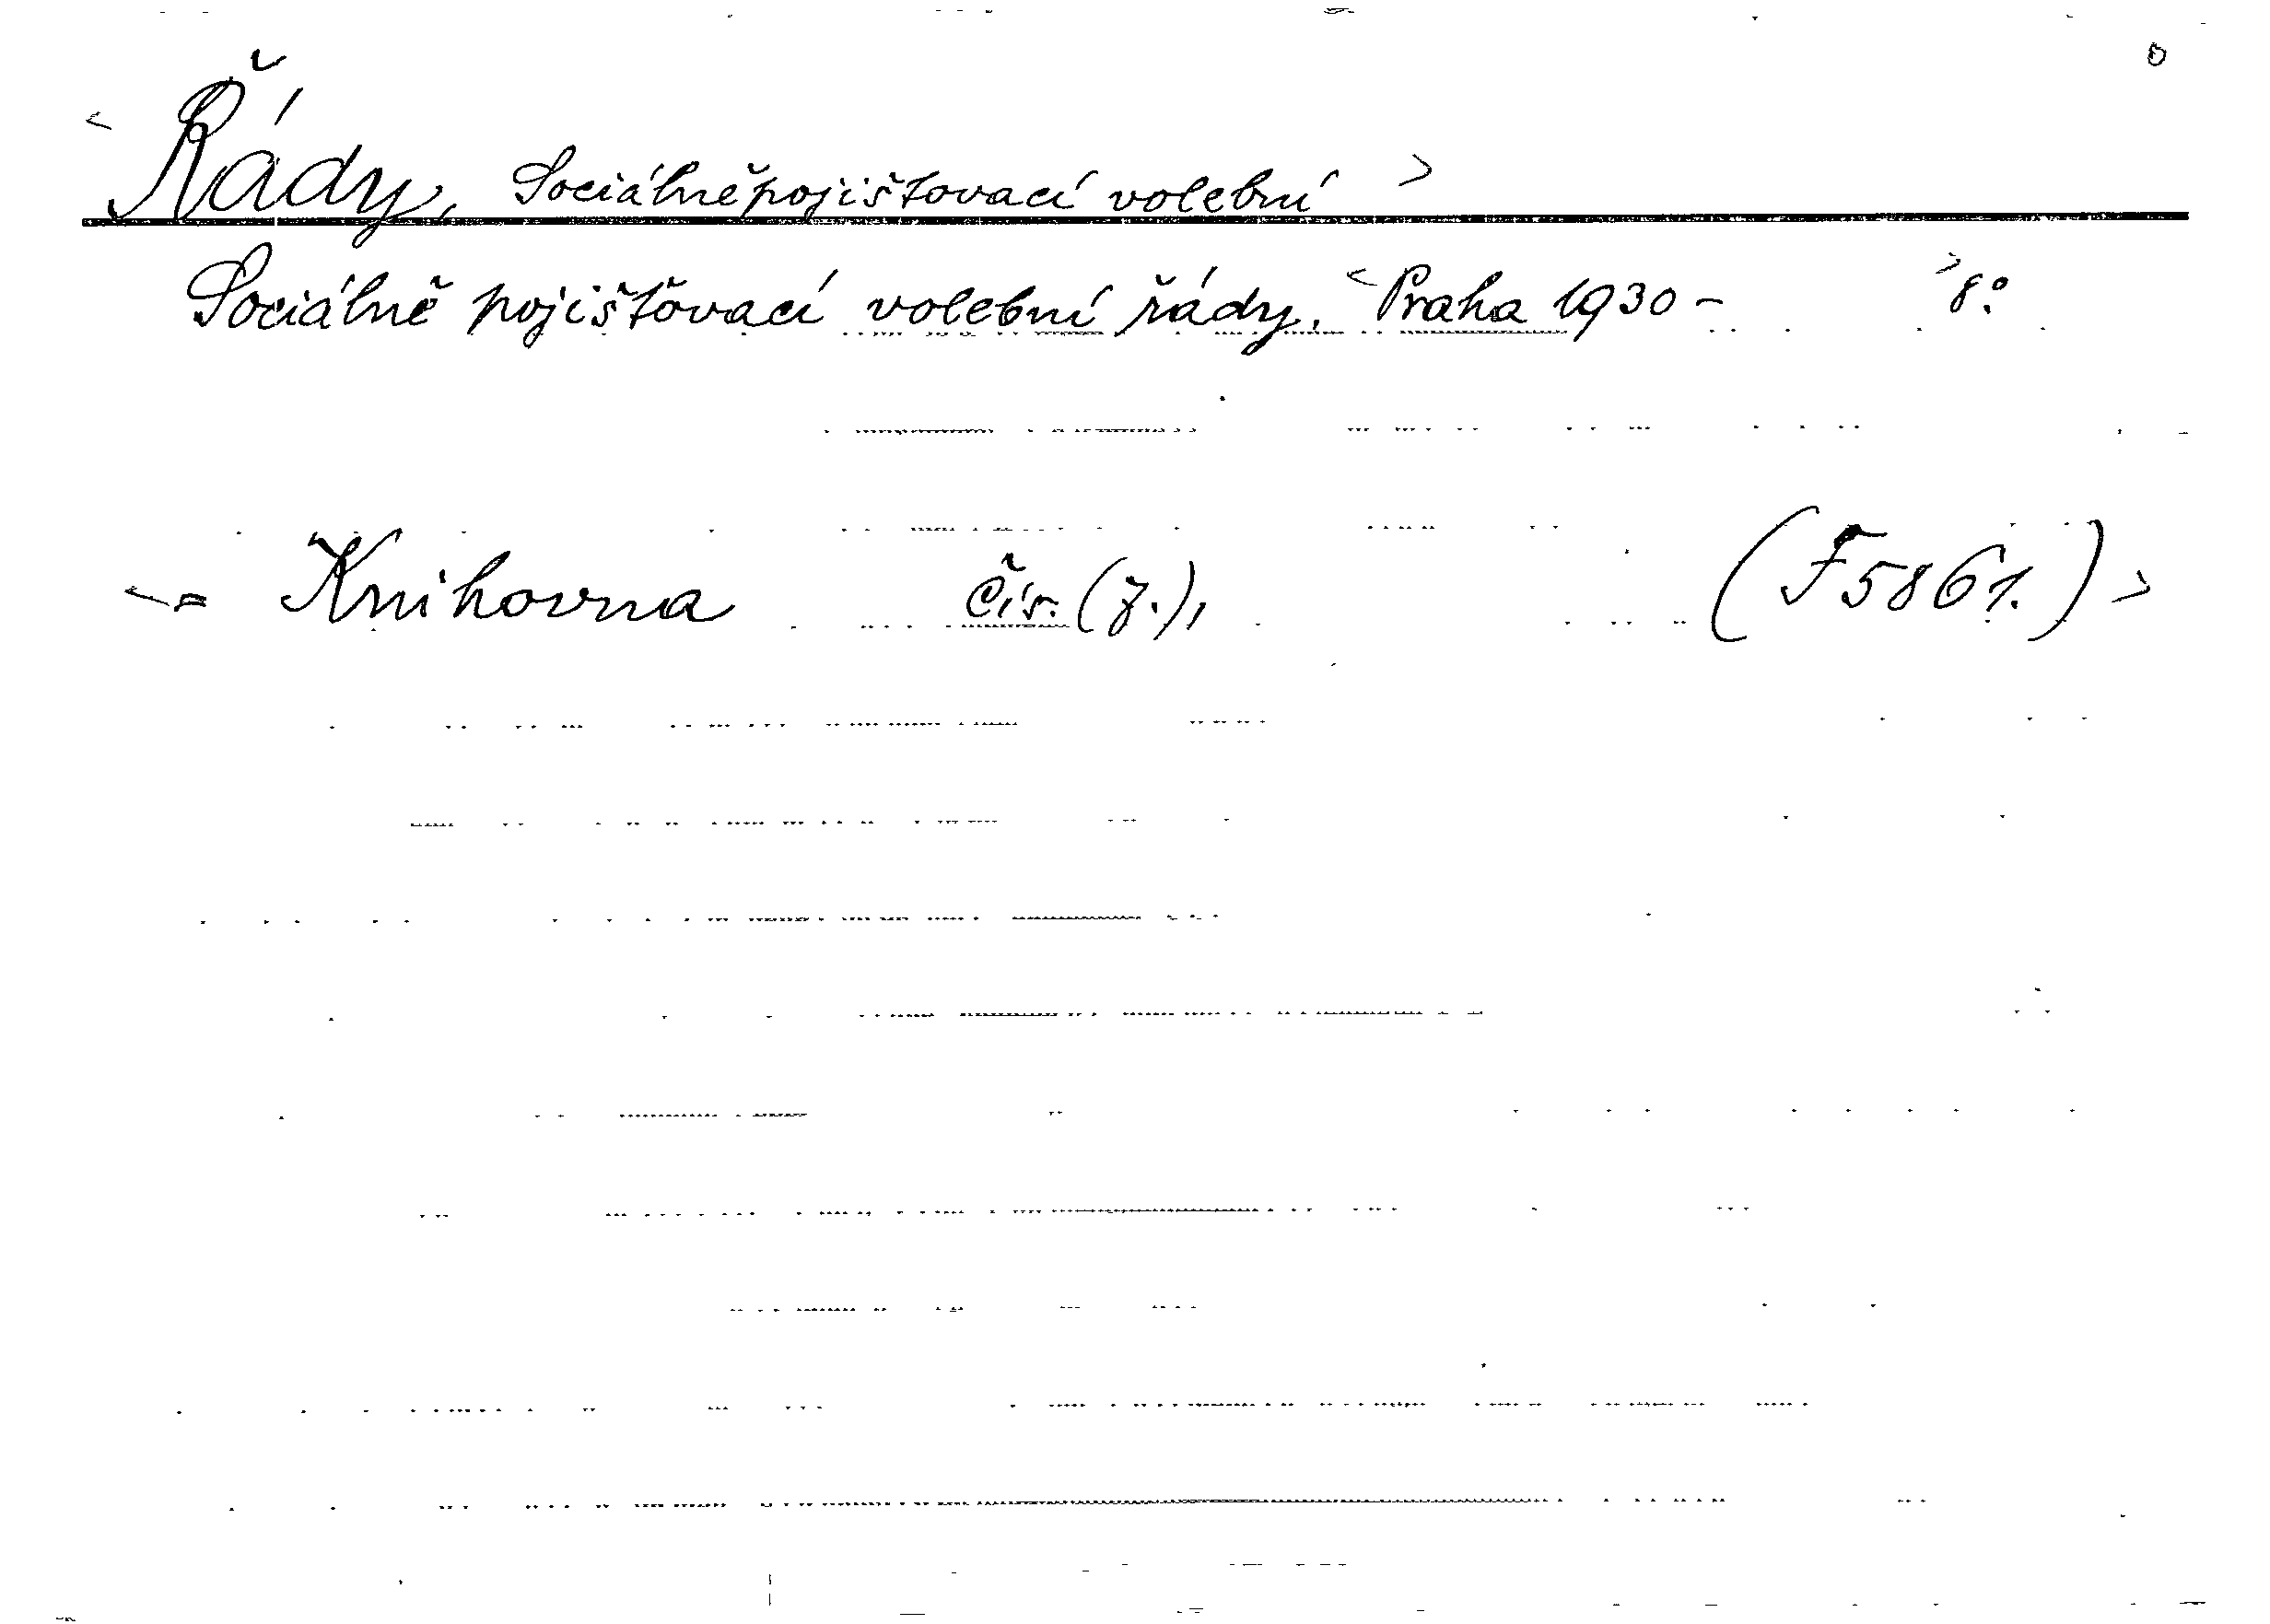 < Řády, Sociálněpojišťovací volební >
Sociálně pojišťovací volební řády. < Praha 1930 - > 8°.
< = Knihovna čís. (7.), (F 5861.) >